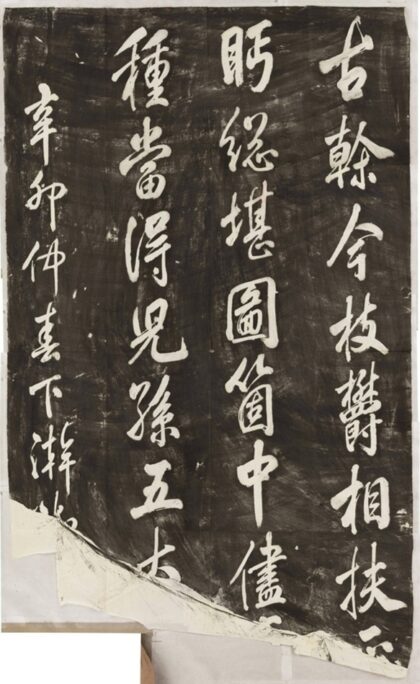 古榦今枝欝相扶
眄緫堪圖箇中儘
種當得兒孫五大
辛卯仲春下澣